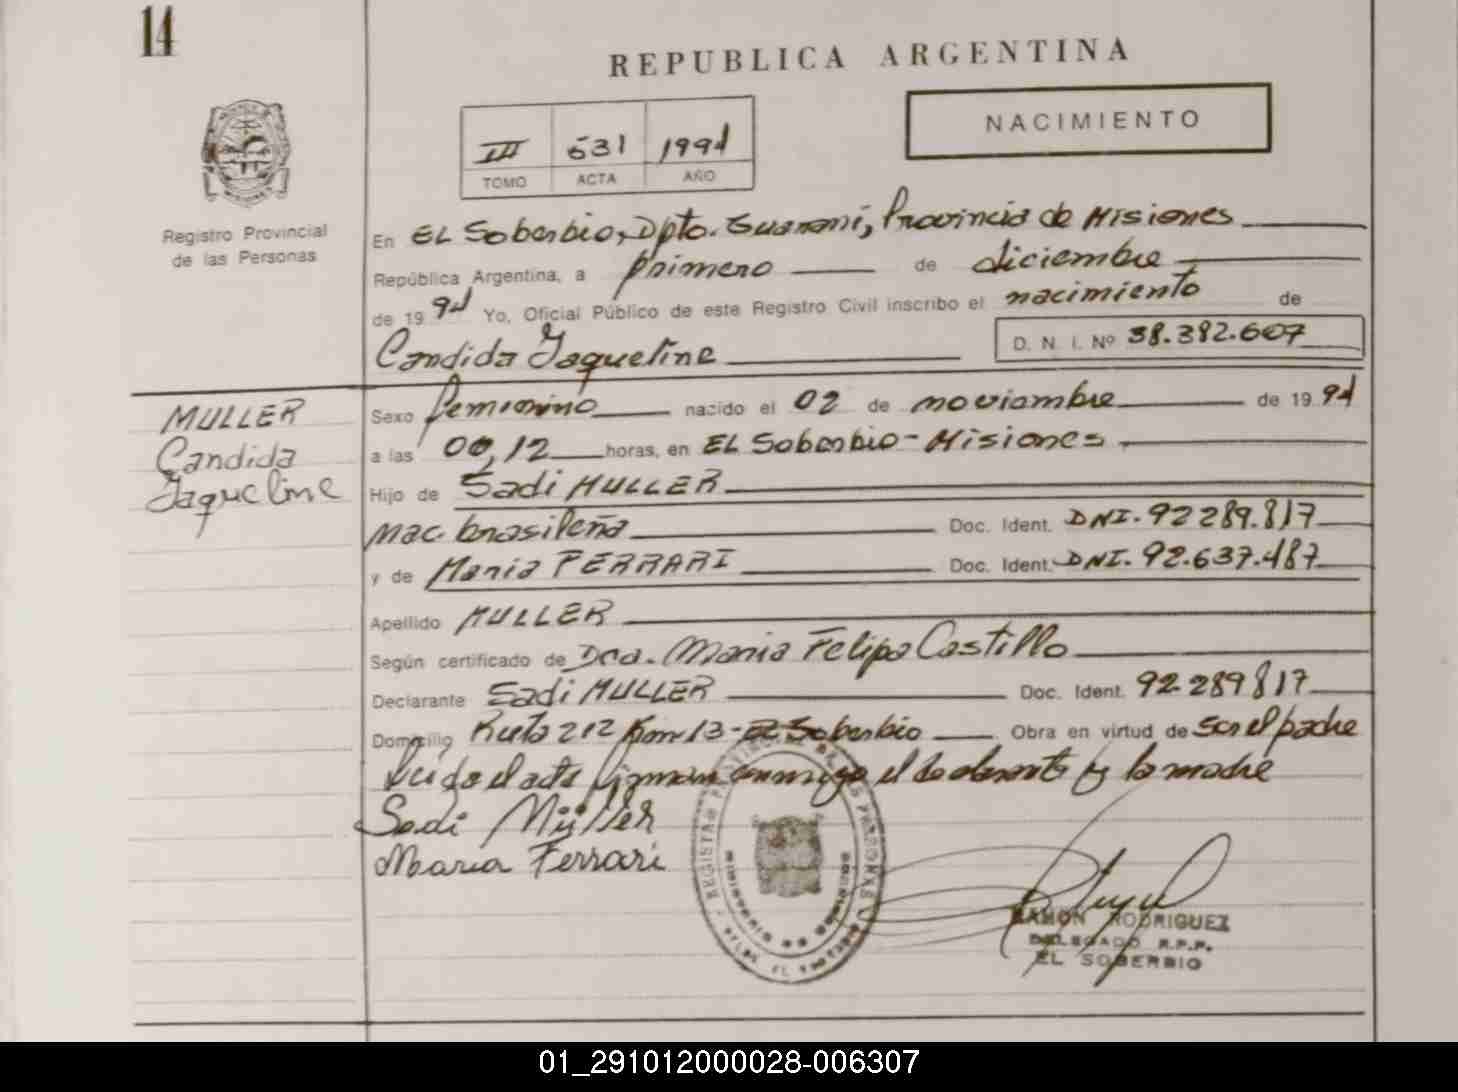 14
REPUBLICA ARGENTINA
NACIMIENTO
III 531 1994
TOMO ACTA AÑO
Registro Provincial
de las Personas
En EL Soberbio, Dpto. Guaraní, Provincia de Misiones
República Argentina, a primero de diciembre
de 1994 Yo, Oficial Público de este Registro Civil inscribo el nacimiento de
Candida Jaqueline D. N. I. Nº 38.382.607
MULLER
Candida
Jaqueline
Sexo femenino nacido el 02 de noviembre de 1994
a las 00,12 horas, en EL Soberbio - Misiones
Hijo de Sadi MULLER
nac. brasileña Doc. Ident. DNI. 92289.817
y de Maria FERRARI Doc. Ident. DNI. 92.637.487
Apellido MULLER
Según certificado de Dra. Maria Felipa Castillo
Declarante Sadi MULLER Doc. Ident. 92.289817
Domicilio Ruta 212 Km 13 - El Soberbio Obra en virtud de ser el padre
Leída el acta firman conmigo el declarante y la madre
Sadi Müller
Maria Ferrari
RAMON RODRIGUEZ
DELEGADO R.P.P.
EL SOBERBIO
01_291012000028-006307